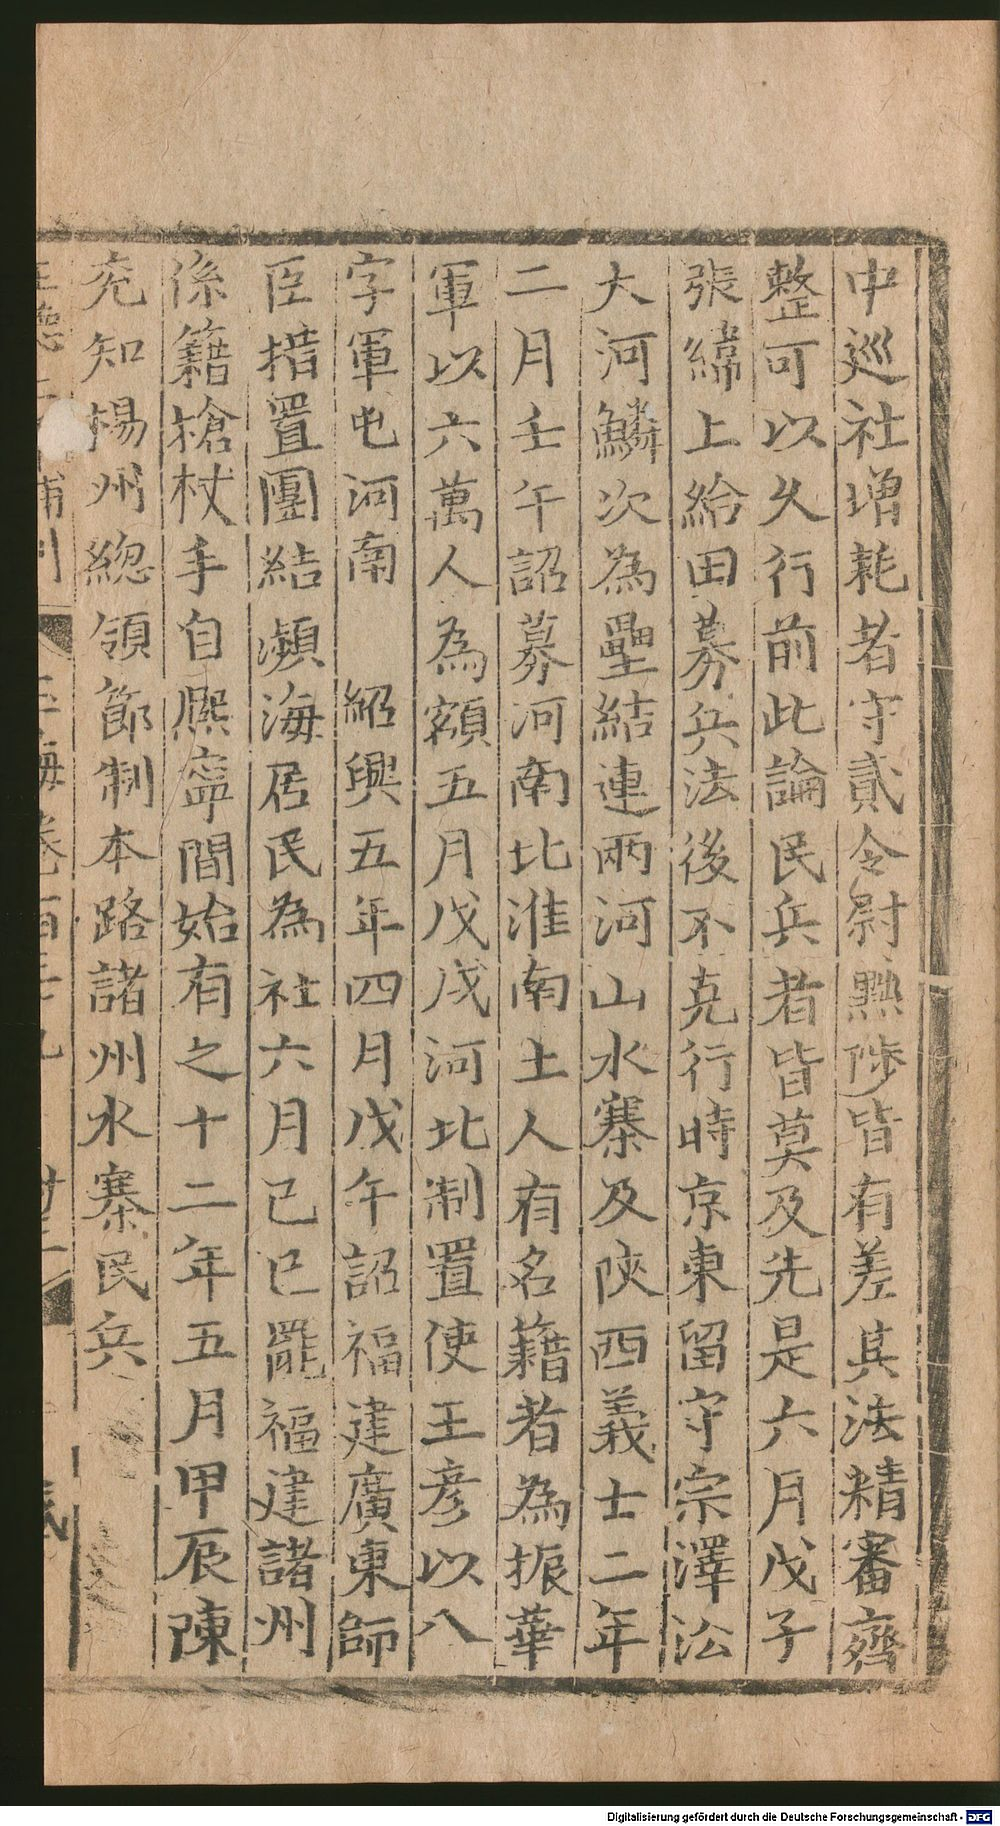 中巡社增耗者守貳令尉黜陟皆有差其法精審齊
整可以久行前此論民兵者皆莫及先是六月戊子
張緯上給田募兵法後不克行時京東留守宗澤㳂
大河鱗次為壘結連兩河山水寨及陝西義士二年
二月壬午詔募河南北淮南土人有名籍者為振華
軍以六萬人為額五月戊戌河北制置使王彥以八
字軍屯河南　紹興五年四月戊午詔福建廣東師
臣措置團結瀕海居民為社六月己巳罷福建諸州
係籍槍杖手自熙寧間始有之十二年五月甲辰陳
充知楊州緫領節制本路諸州水寨民兵
玉海卷百三十九
Digitalisierung gefördert durch die Deutsche Forschungsgemeinschaft - DFG